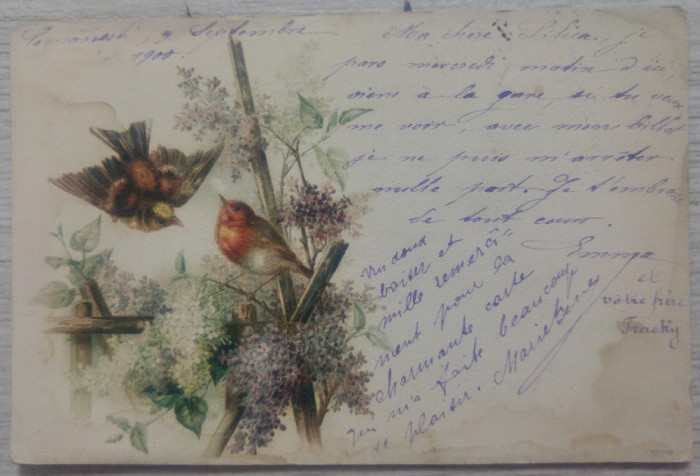 9 Septembre
1900
Ma chère Lilica, je
pars mercredi matin d'ici,
viens à la gare, si tu veux
me voir, avec mon billet
je ne puis m'arrêter
nulle part. Je t'embrasse
de tout cœur.
Emma
et
vôtre frère
Fracky
Un doux
baiser et
mille remercî"
ment pour la
charmante carte
qui m'a faite beaucoup
de plaisir. Marie